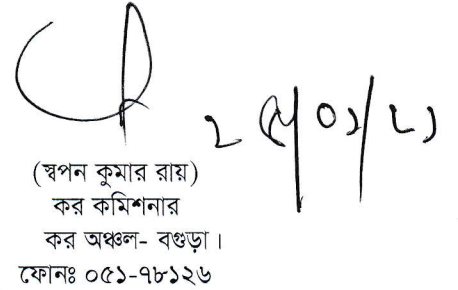 ২৫/০১/২১
(স্বপন কুমার রায়)
কর কমিশনার
কর অঞ্চল- বগুড়া।
ফোনঃ ০৫১-৭৮১২৬